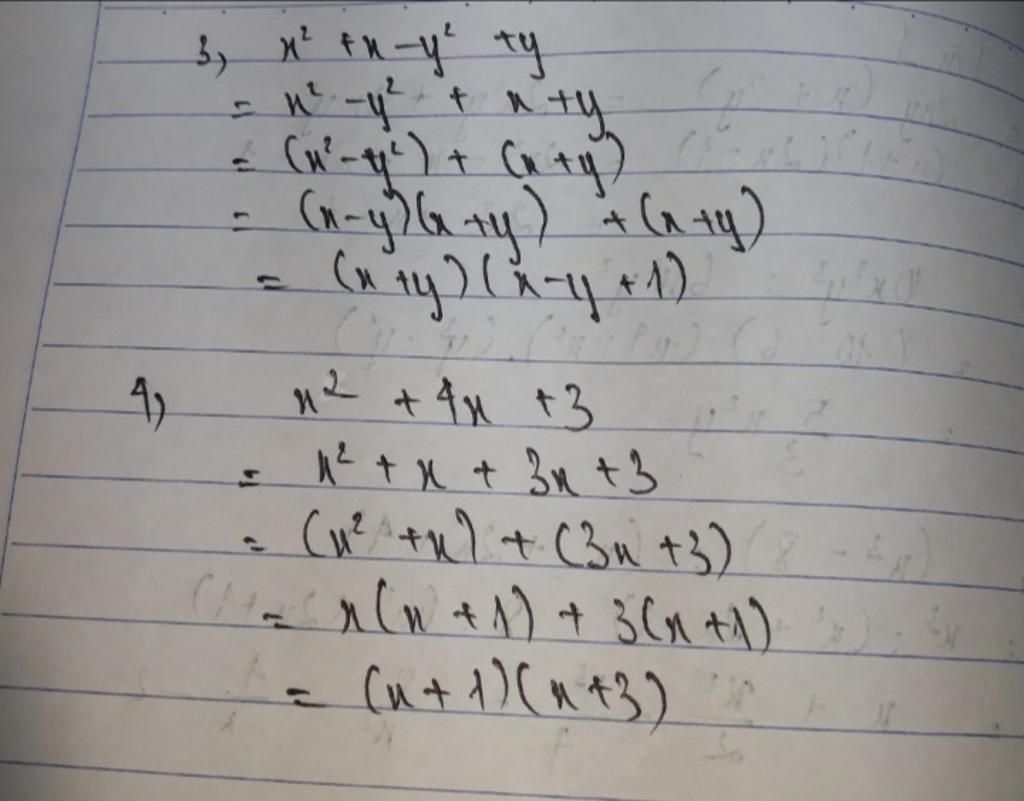 3) x² + x - y² + y
= x² - y² + x + y
= (x² - y²) + (x + y)
= (x - y)(x + y) + (x + y)
= (x + y)(x - y + 1)
4) x² + 4x + 3
= x² + x + 3x + 3
= (x² + x) + (3x + 3)
= x(x + 1) + 3(x + 1)
= (x + 1)(x + 3)